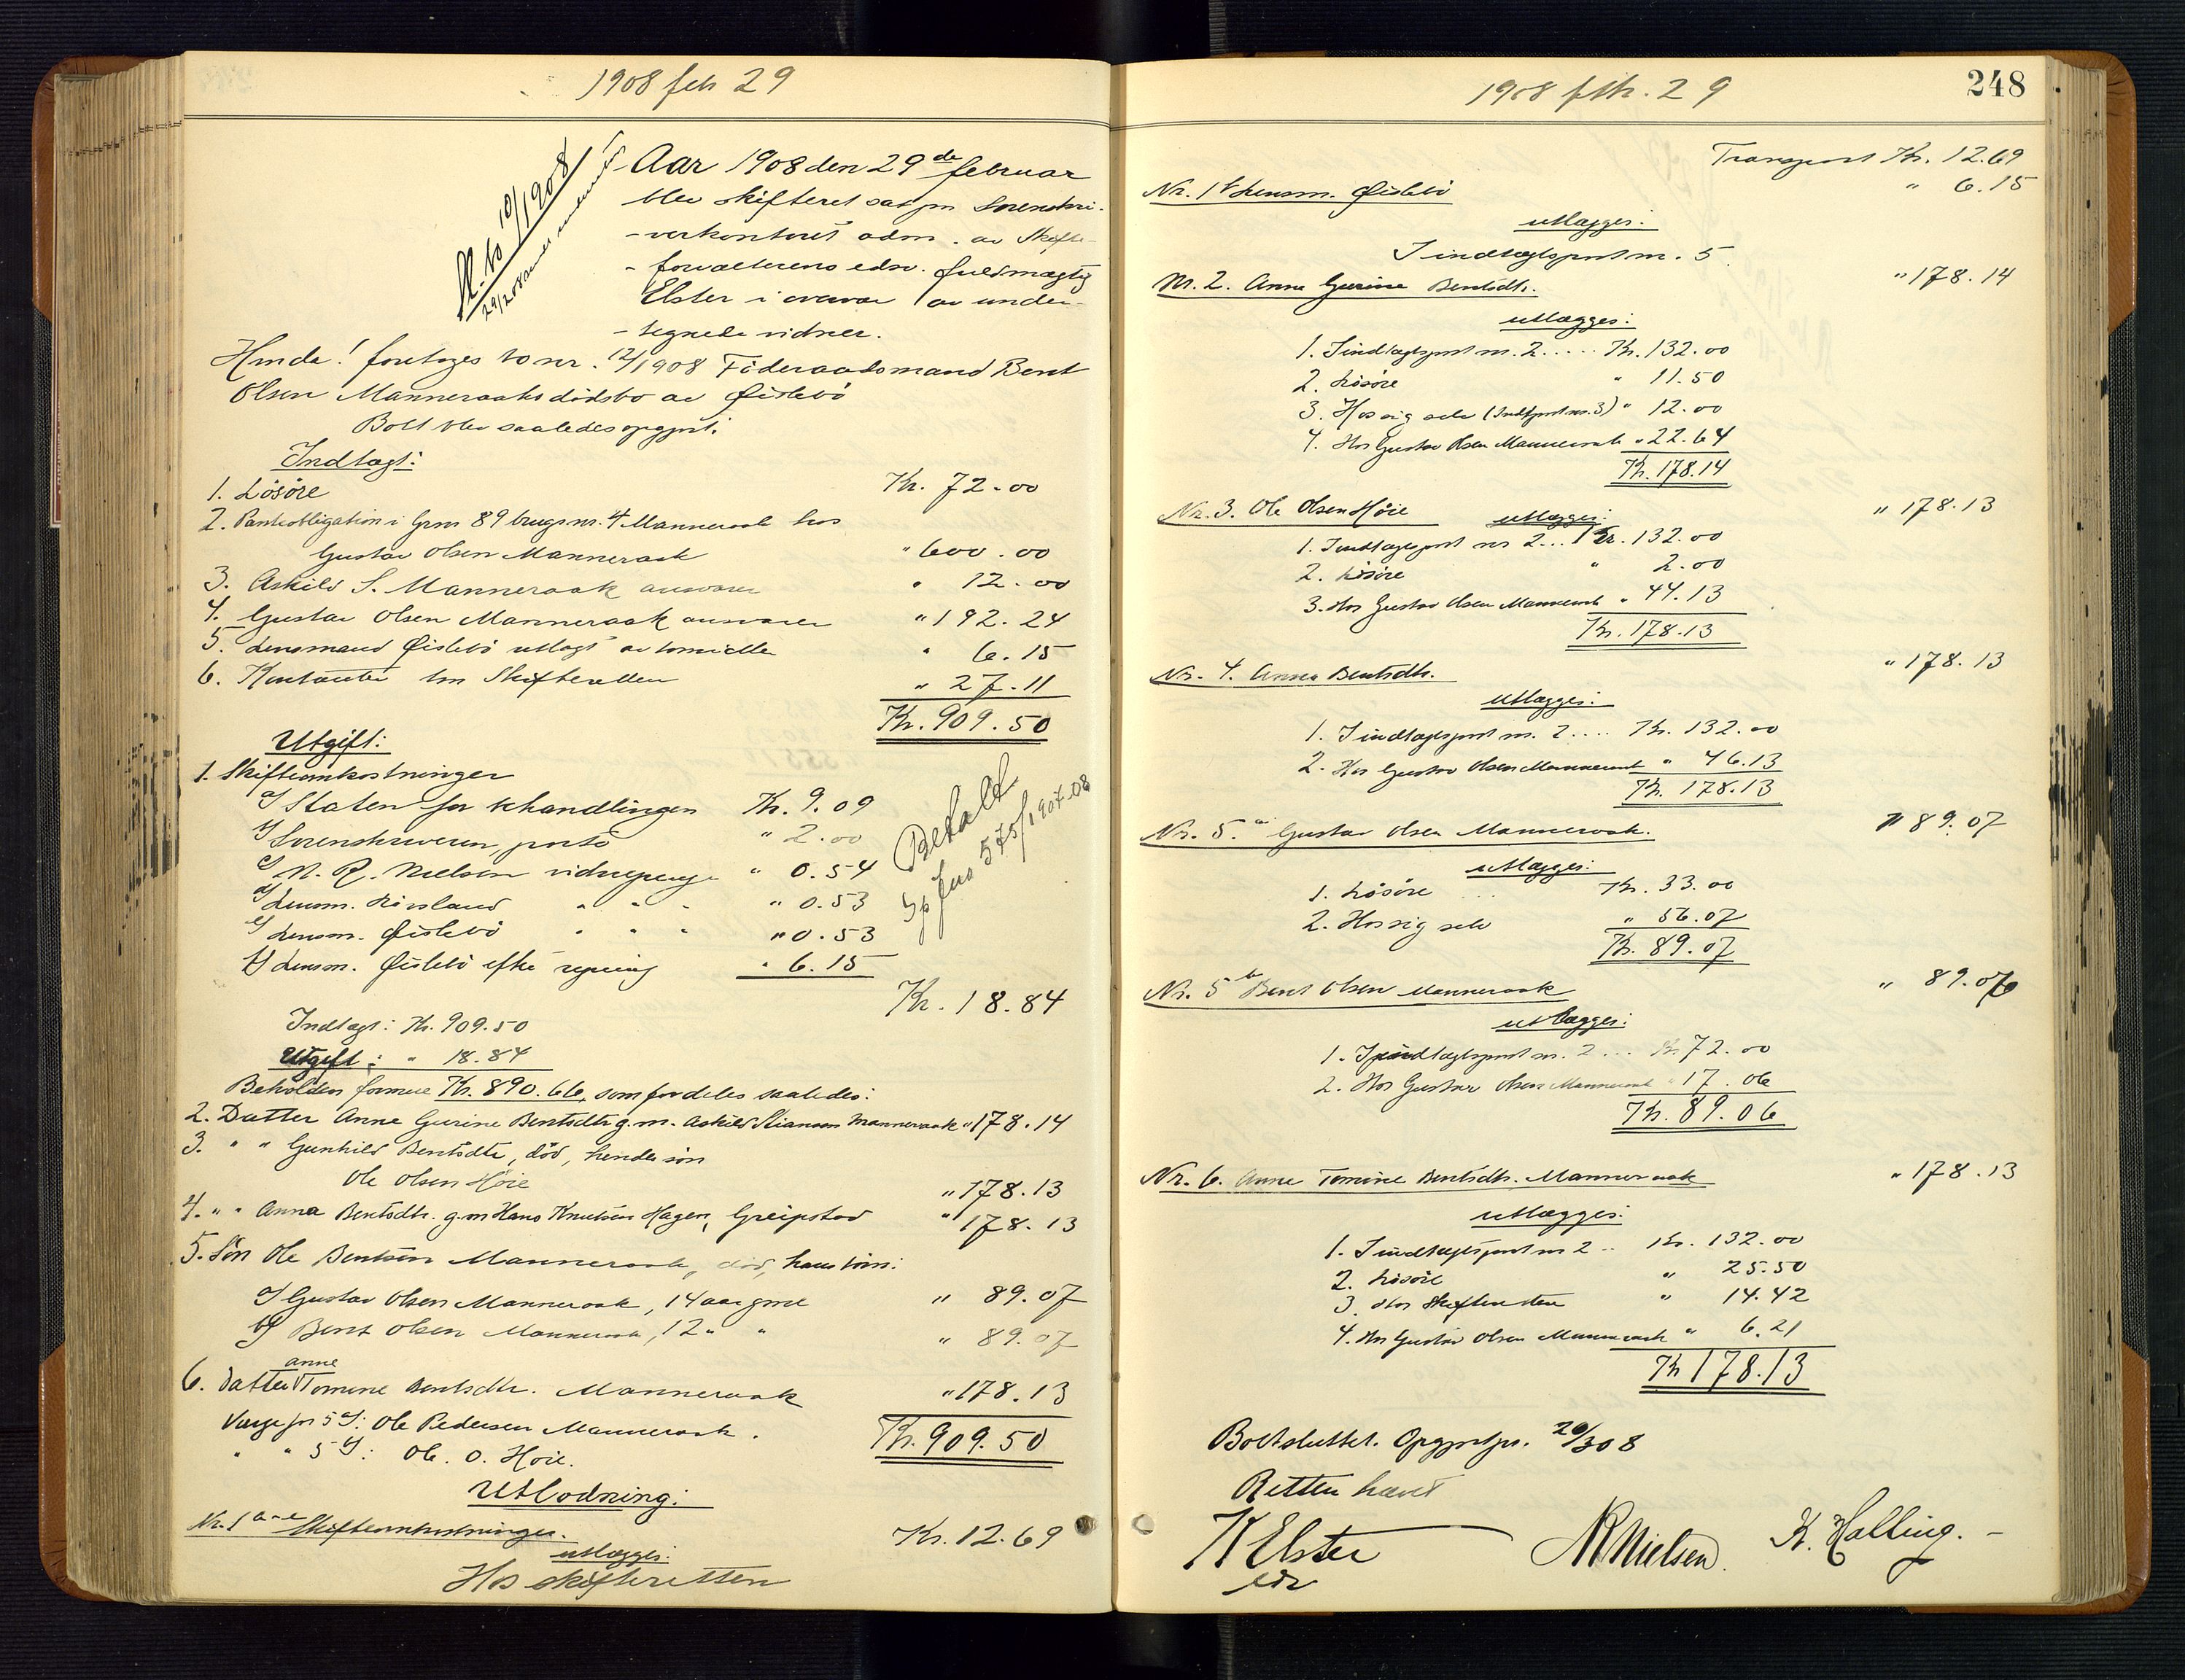 1908 feb 29
Aar 1908 den 29de februar
blev skifteret sat paa Sorenskri-
-verkontoret adm. av Skifte-
-forvalterens edsv. fuldmægtig
Elster i nærvær av under-
-tegnede vidner.
12/1908
Hvorda! foretoges bo nr. 12/1908 Föderaadsmand Bent
Olsen Manneraaks dödsbo av Öislebö
Boet blev saaledes opgjort:
Indtægt:
1. Lösöre Kr. 72.00
2. Pantobligation i Grno 89 brugsnr. 4 Manneraak hos
Gustav Olsen Manneraak " 600.00
3. Askild S. Manneraak ansvarer " 12.00
4. Gustav Olsen Manneraak ansvarer " 192.24
5. Lensmand Öislebö utlagt av bomidler " 6.15
6. Kontanter hos Skifteretten " 27.11
Kr. 909.50
Utgift:
1. Skifteomkostninger
a) Staten for behandlingen Kr. 9.09
b) Sorenskriveren, porto " 2.00
c) N. R. Nielsen vidnepenge " 0.54
d) Lensm. Kirsland " " " " 0.53
e) Lensm. Öislebö " " " " 0.53
f) Lensm. Öislebö efter regning " 6.15
Betalt
575/1907-08
Kr. 18.84
Indtægt: Kr. 909.50
Utgift: " 18.84
Beholden formue Kr. 890.66, som fordeles saaledes:
2. Datter Anne Gurine Bentsdtr g. m. Askild Stianson Manneraak " 178.14
3. " " Gunhild Bentsdtr, död, hendes sön
Ole Olsen Höie " 178.13
4. " " Anna Bentsdtr. g.m Hans Knutsen Hagen, Greipstad " 178.13
5. Sön Ole Bentsen Manneraak, död, hans börn:
a) Gustav Olsen Manneraak, 14 aar gml " 89.07
b) Bent Olsen Manneraak, 12 " " " 89.07
6. Datter Anne Tomine Bentsdtr. Manneraak " 178.13
Værge for 5 a): Ole Pedersen Manneraak.
" " 5 b): Ole O. Höie.
Kr. 909.50
Utlodning:
Nr. 1 a-e Skifteomkostninger. Kr. 12.69
utlægges:
Hos skifteretten
1908 feb. 29
248
Transport Kr. 12.69
Nr. 1 f Lensm. Öislebö " 6.15
utlægges:
I indtægtspost nr. 5.
Nr. 2. Anne Gurine Bentsdtr. " 178.14
utlægges:
1. I indtægtspost nr. 2..... Kr. 132.00
2. Lösöre " 11.50
3. Hos sig selv (Indtpost nr. 3) " 12.00
4. Hos Gustav Olsen Manneraak " 22.64
Kr. 178.14
Nr. 3. Ole Olsen Höie " 178.13
utlægges:
1. I indtægtspost nr 2... Kr. 132.00
2. Lösöre " 2.00
3. Hos Gustav Olsen Manneraak " 44.13
Kr. 178.13
Nr. 4. Anna Bentsdtr. " 178.13
utlægges:
1. I indtægtspost nr. 2.... Kr. 132.00
2. Hos Gustav Olsen Manneraak " 46.13
Kr. 178.13
Nr. 5 a Gustav Olsen Manneraak. " 89.07
utlægges:
1. Lösöre ... Kr. 33.00
2. Hos sig selv " 56.07
Kr. 89.07
Nr. 5 b Bent Olsen Manneraak " 89.06
utlægges:
1. I indtægtspost nr. 2... Kr. 72.00
2. Hos Gustav Olsen Manneraak " 17.06
Kr. 89.06
Nr. 6. Anne Tomine Bentsdtr. Manneraak " 178.13
utlægges:
1. I indtægtspost nr 2.. Kr. 132.00
2. Lösöre " 25.50
3. Hos Skifteretten " 14.42
4. Hos Gustav Olsen Manneraak " 6.21
Kr 178.13
Boet sluttet. Opgjort pr. 29/2 08
Retten hævet
K Elster
edsv
NRNielsen. K. Halling. -